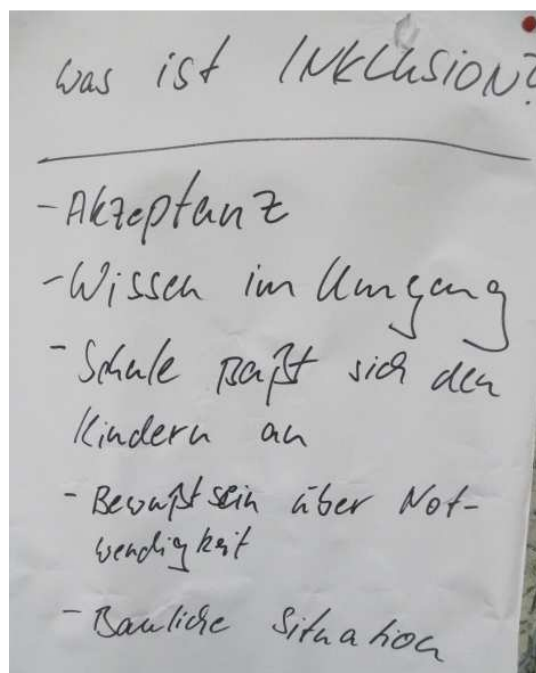 Was ist INKLUSION?
- Akzeptanz
- Wissen im Umgang
- Schule paßt sich den
Kindern an
- Bewußtsein über Not-
wendigkeit
- Bauliche Situation